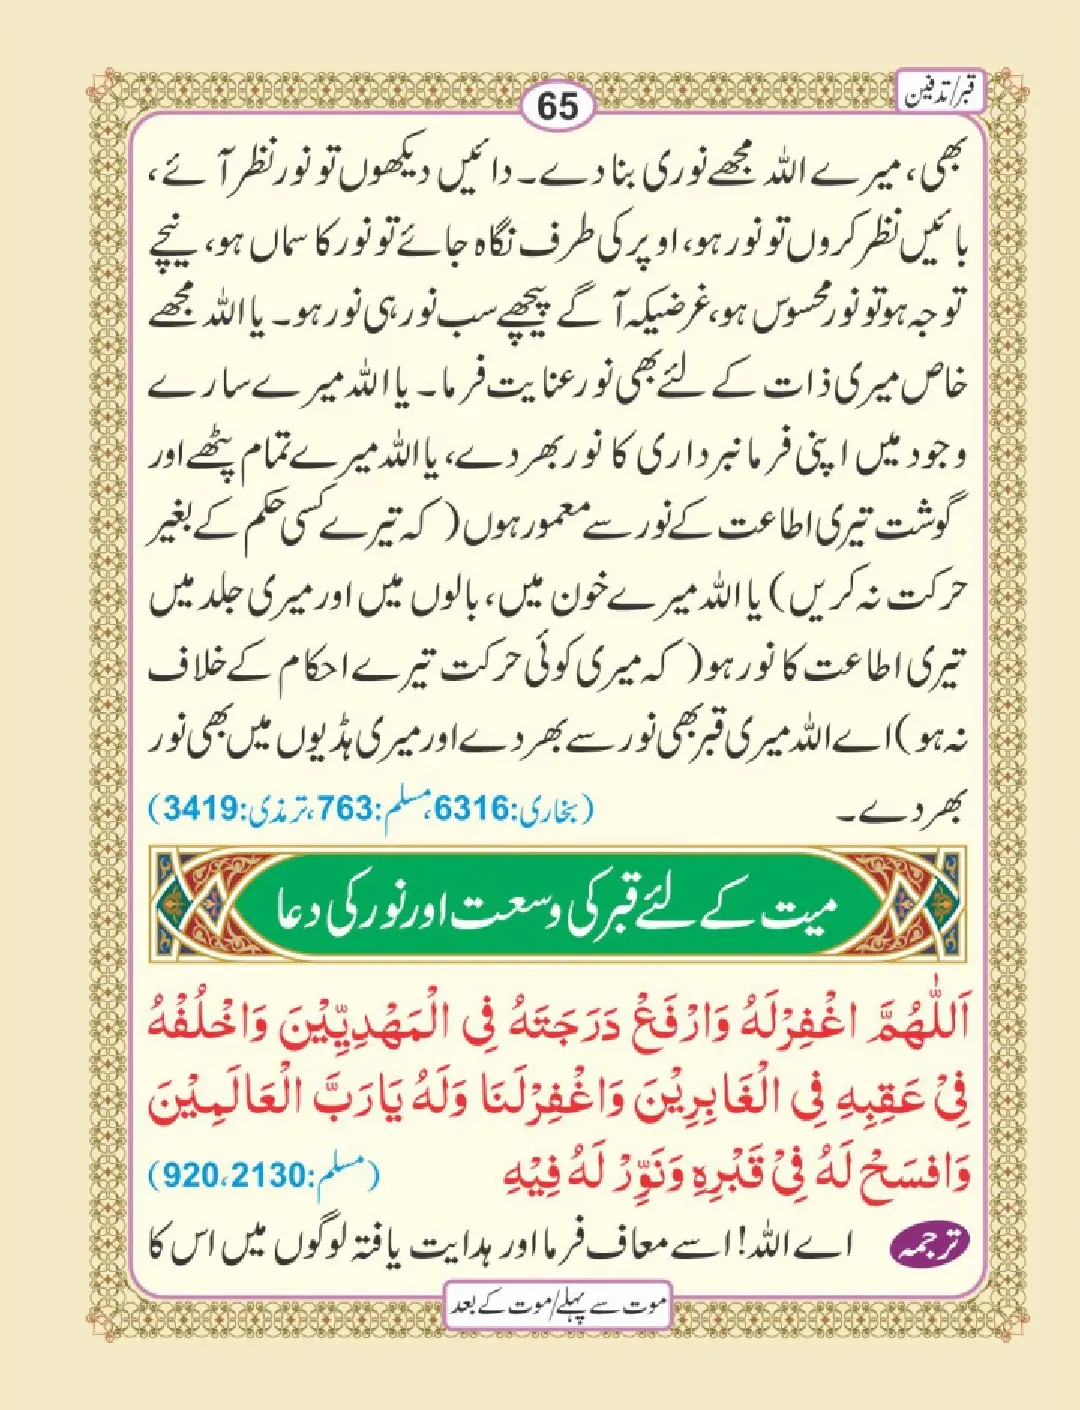 قبر/تدفین
65
بھی، میرے اللہ مجھے نوری بنا دے۔ دائیں دیکھوں تو نور نظر آئے،
بائیں نظر کروں تو نور ہو، اوپر کی طرف نگاہ جائے تو نور کا سماں ہو، نیچے
توجہ ہو تو نور محسوس ہو، غرضیکہ آگے پیچھے سب نور ہی نور ہو۔ یا اللہ مجھے
خاص میری ذات کے لئے بھی نور عنایت فرما۔ یا اللہ میرے سارے
وجود میں اپنی فرمانبرداری کا نور بھر دے، یا اللہ میرے تمام پٹھے اور
گوشت تیری اطاعت کے نور سے معمور ہوں (کہ تیرے کسی حکم کے بغیر
حرکت نہ کریں) یا اللہ میرے خون میں، بالوں میں اور میری جلد میں
تیری اطاعت کا نور ہو (کہ میری کوئی حرکت تیرے احکام کے خلاف
نہ ہو) اے اللہ میری قبر بھی نور سے بھر دے اور میری ہڈیوں میں بھی نور
بھر دے۔ (بخاری:6316، مسلم:763، ترمذی:3419)
میت کے لئے قبر کی وسعت اور نور کی دعا
اَللّٰهُمَّ اغْفِرْلَهُ وَارْفَعْ دَرَجَتَهُ فِی الْمَهْدِيِّيْنَ وَاخْلُفْهُ
فِیْ عَقِبِهِ فِی الْغَابِرِيْنَ وَاغْفِرْلَنَا وَلَهُ يَارَبَّ الْعَالَمِيْنَ
وَافْسَحْ لَهُ فِیْ قَبْرِهِ وَنَوِّرْ لَهُ فِيْهِ (مسلم:920،2130)
ترجمہ اے اللہ! اسے معاف فرما اور ہدایت یافتہ لوگوں میں اس کا
موت سے پہلے/موت کے بعد